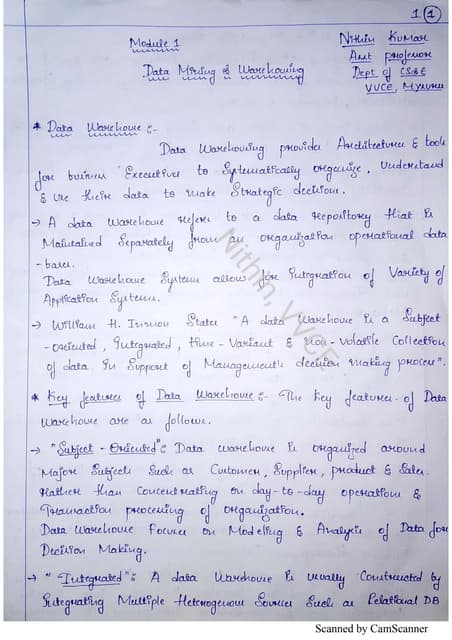 1 (1)
Module 1
Nithin Kumar
Data Mining & Warehousing
Asst professor
Dept of CS&E
VVCE, Mysuru
* Data Warehouse :-
Data Warehousing provides Architectures & tools
for business Executives to Systematically organize, Understand
& use their data to make Strategic decisions.
→ A data Warehouse refers to a data repository that is
Maintained Separately from an organization operational data
-bases.
Data Warehouse Systems allows for Integration of Variety of
Application Systems.
→ William H. Inmon States "A data Warehouse is a Subject
-oriented, Integrated, time-Variant & non-volatile Collection
of data in Support of Management's decision making process".
* Key features of Data Warehouse :- The key features of Data
Warehouse are as follows.
→ "Subject-Oriented": Data warehouse is organized around
Major Subjects Such as Customer, Supplier, product & Sales.
Rather than Concentrating on day-to-day operations &
Transaction processing of organization.
Data Warehouse focuses on Modeling & Analysis of Data for
Decision Making.
→ "Integrated": A data Warehouse is usually Constructed by
Integrating Multiple Heterogenous Sources Such as Relational DB
Nithin, VVCE
Scanned by CamScanner